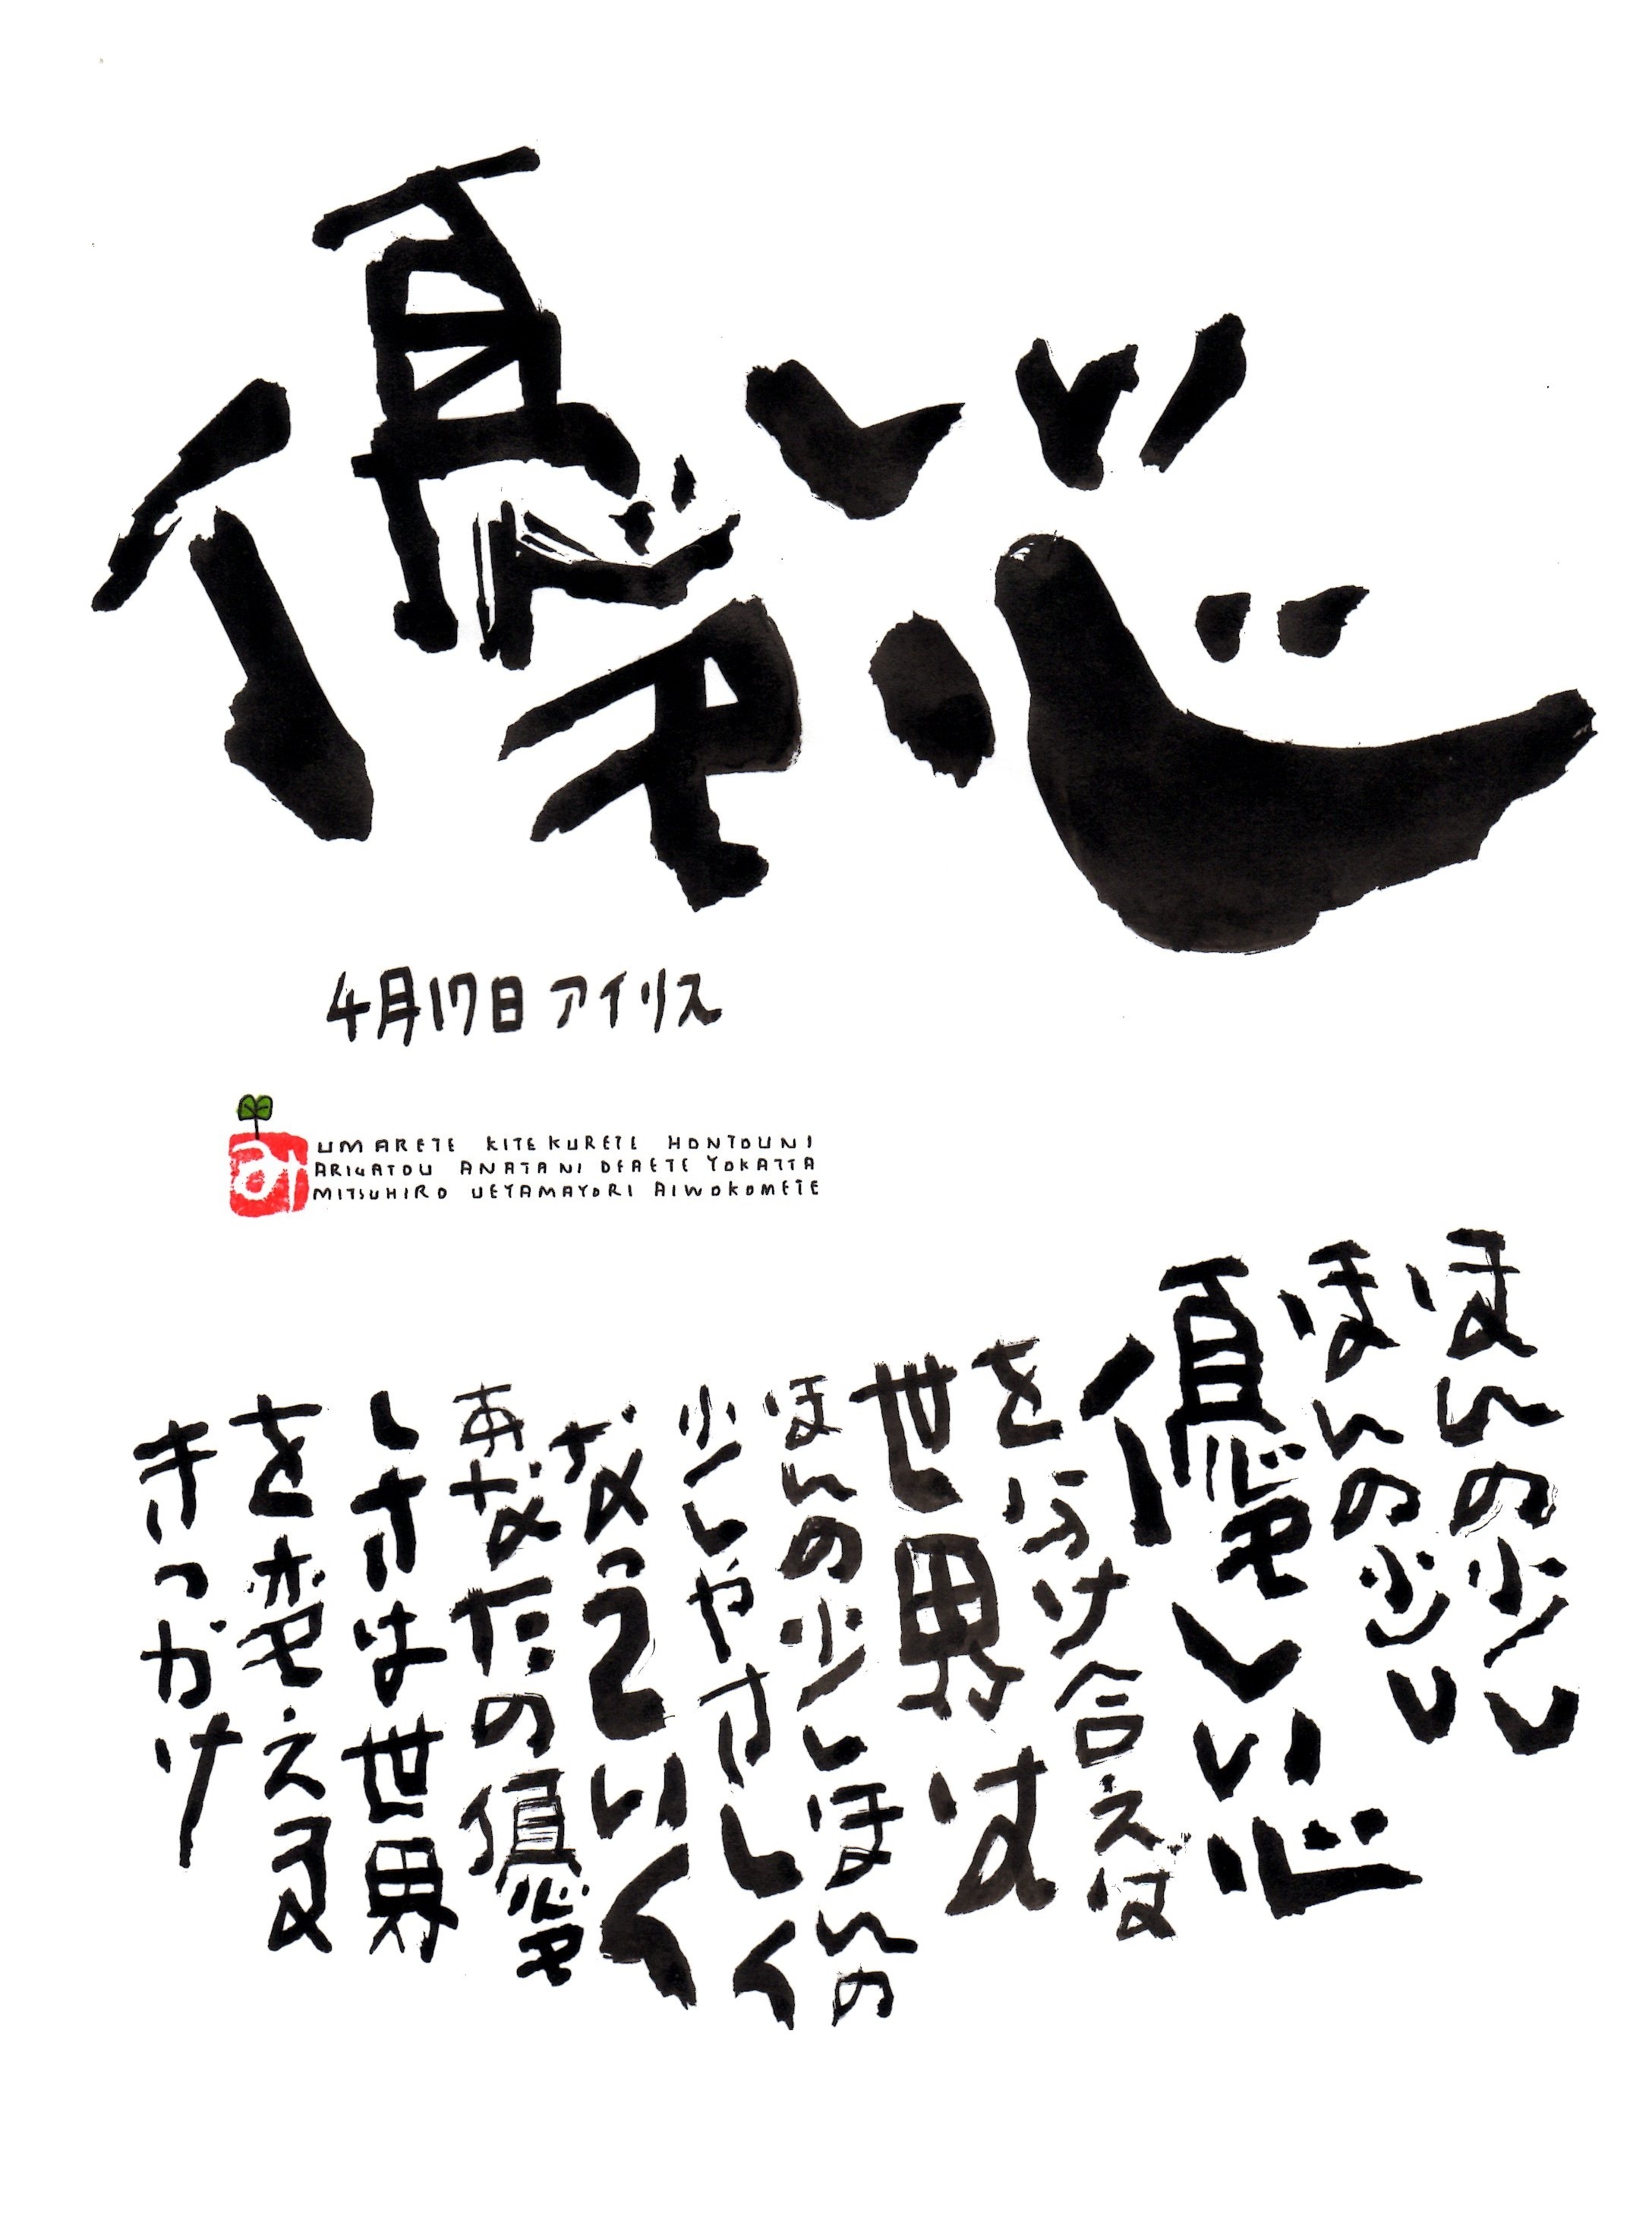 優しい心
4月17日 アイリス
み
UMARETE KITEKURETE HONTOUNI
ARIGATOU ANATANI DEAETE YOKATTA
MITSUHIRO UEYAMAYORI AIWOKOMETE
ほんの少し
ほんの少し
優しい心
を分け合えば
世界は
ほんの少しほんの
少しやさしく
なっていく
あなたの優
しさは世界
を変える
きっかけ